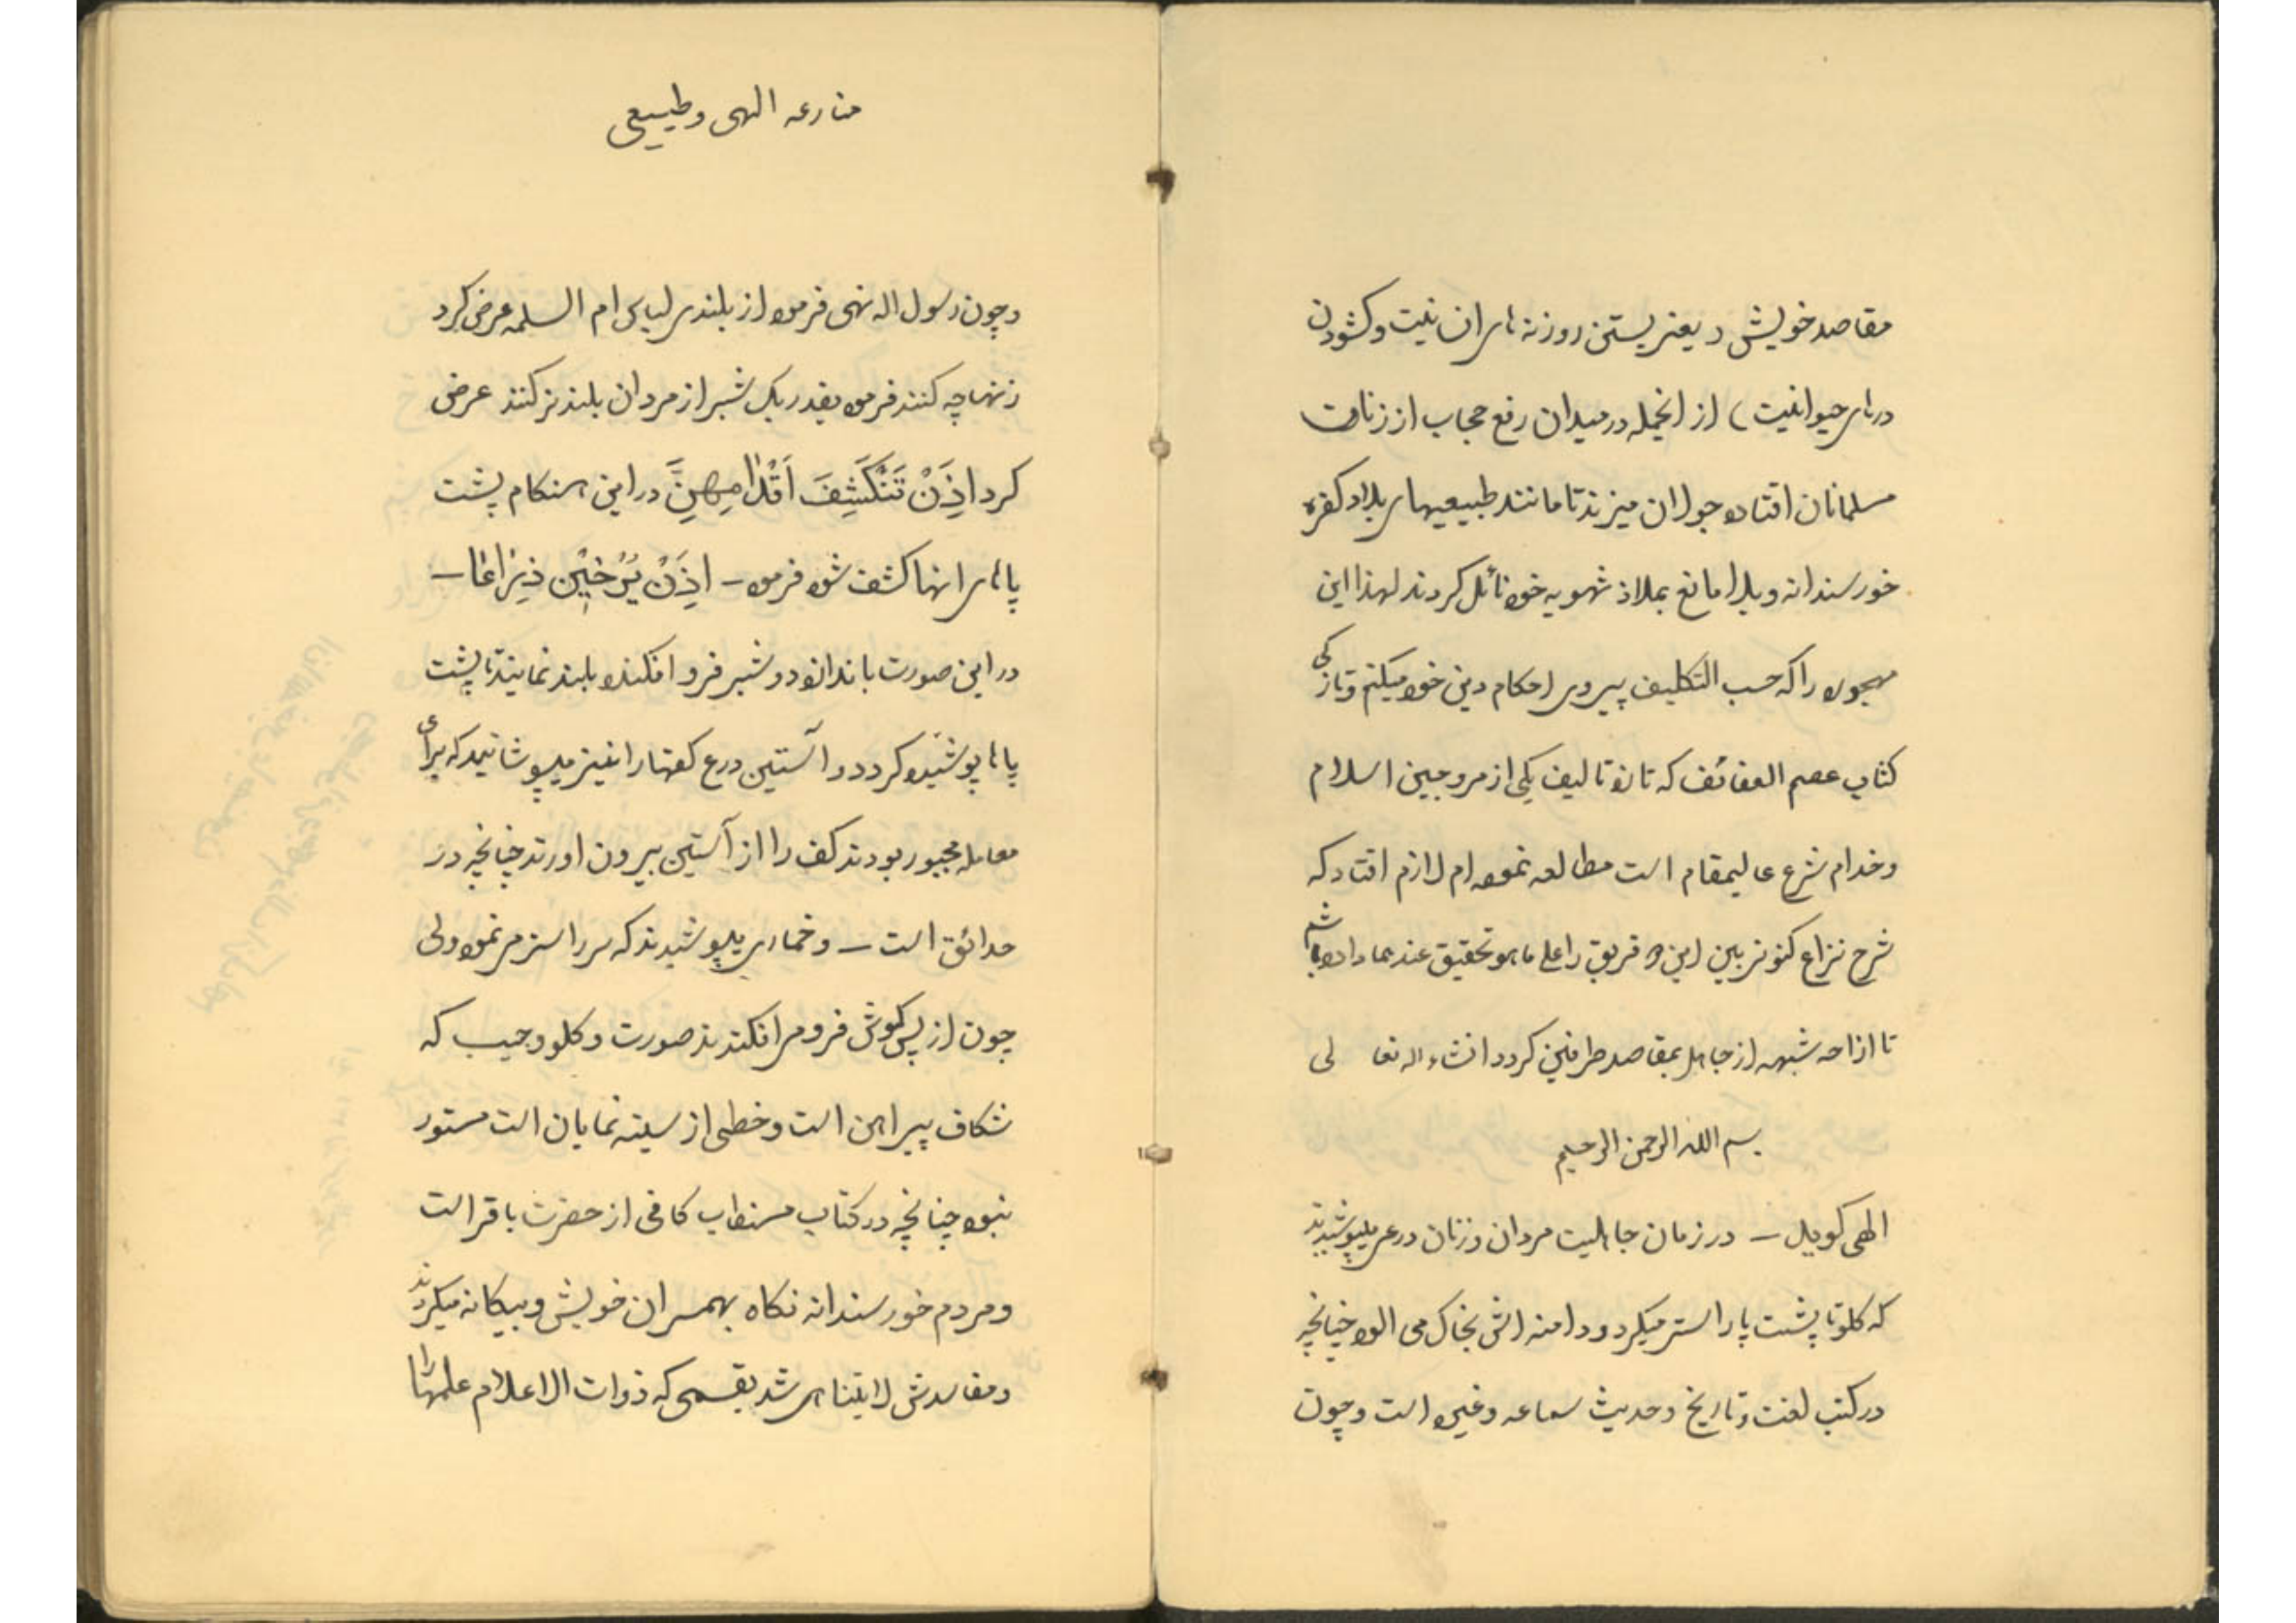 مقاصد خویش ( یعنی بستن روزنه های انسانیت و کشودن
درهای حیوانیت ) از انجمله در میدان رفع حجاب از زنان
مسلمانان افتاده جولان میزنند تا مانند طبیعیهای بلاد کفره
خورسندانه و بلا مانع بملاذ شهویه خود نائل کردند لهذا این
را که حسب التکلیف پیروی احکام دین خود میکنم و تازکی
کتاب عصم العفائف که تازه تالیف یکی از مروجین اسلام
و خدام شرع عالیمقام است مطالعه نموده ام لازم افتاد که
شرح نزاع کنونی بین این دو فریق را علی ما هو تحقیق عندهما داده باشم
تا ازاحه شبهه از جاهل بمقاصد طرفین کردد انشاء اله تعالی
بسم الله الرحمن الرحیم
الهی کوید - در زمان جاهلیت مردان و زنان درعی میپوشیدند
که کلو تا پشت پا را ستر میکرد و دامنه اش بخاک می الود چنانچه
در کتب لغت و تاریخ و حدیث سماعه و غیره است و چون
منازعه الهی و طبیعی
و چون رسول اله نهی فرمود از بلندی لباس ام السلمه عرض کرد
زنها چه کنند فرمود بقدر یک شبر از مردان بلندتر کنند عرض
کرد اِذَنْ تَنْکَشِفَ اَقْدٰامِهِنَّ در این هنکام پشت
پاهای انها کشف شود فرمود - اِذَنْ یُرْخِیْنَ ذِرٰاعًا -
در این صورت باندازه دو شبر فرو افکنده بلند نمایند تا پشت
پاها پوشیده کردد و آستین درع کفها را نیز میپوشانید که برای
معامله مجبور بودند کف را از آستین بیرون اورند چنانچه در
حدائق است - و خماری میپوشیدند که سر را ستر می نمود ولی
چون از پس کوش فرو می افکندند صورت و کلو و جیب که
شکاف پیراهن است و خطی از سینه نمایان است مستور
نبود چنانچه در کتاب مستطاب کافی از حضرت باقر است
و مردم خورسندانه نکاه بهمسران خویش و بیکانه میکردند
و مفاسدش لایتناهی شد بقسمی که ذوات الاعلام علمها را